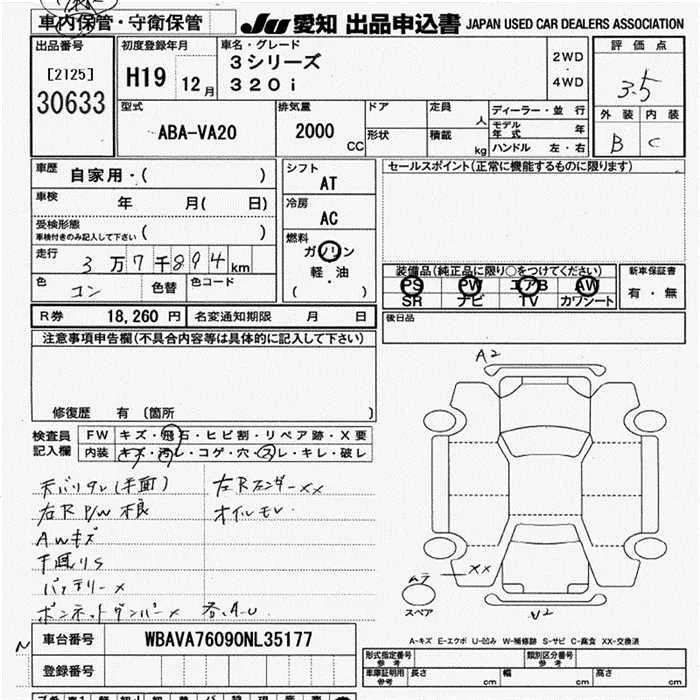 車内保管・守衛保管 JU 愛知 出品申込書 JAPAN USED CAR DEALERS ASSOCIATION
出品番号
[2125]
30633
初度登録年月
H19 12月
車名・グレード
3シリーズ
320i
2WD
・
4WD
評価点
3.5
外装 内装
B C
型式
ABA-VA20
排気量
2000 CC
ドア
形状
定員 人
積載 kg
ディーラー・並行
モデル年式 年
ハンドル 左・右
車歴 自家用・( )
車検 年 月( 日)
受検形態
車検付きのみ記入して下さい ( )
走行 3万7千894km
色 コン 色替 色コード
シフト
AT
冷房
AC
燃料
ガソリン
軽・油
( )
セールスポイント(正常に機能するものに限ります)
装備品(純正品に限り○をつけてください)
PS PW エアB AW
SR ナビ TV カワシート
新車保証書
有・無
R券 18,260 円 名変通知期限 月 日
後日品
注意事項申告欄(不具合内容等は具体的に記入して下さい)
修復歴 有 〔箇所 〕
検査員
記入欄
FW キズ・飛石・ヒビ割・リペア跡・X要
内装 キズ・汚レ・コゲ・穴・スレ・キレ・破レ
天バリタレ(半面)
左Rフェンダーxx
右R P/W不良
オイルモレ
AWキズ
下廻りS
バッテリーx
ボンネットダンパーx 各、A-U
A2
xx
ムラ
スペア
V2
A-キズ E-エクボ U-凹み W-補修跡 S-サビ C-腐食 XX-交換済
車台番号 WBAVA76090NL35177
登録番号
形式指定番号
参考
類別区分番号
参考
車庫証明用
参考
長さ 幅 高さ